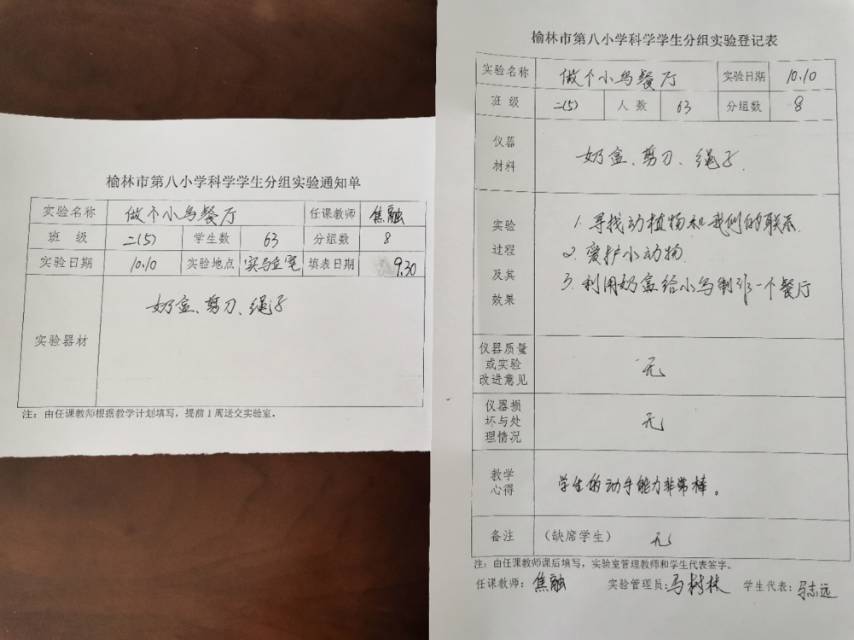 榆林市第八小学科学学生分组实验通知单
实验名称 做个小鸟餐厅 任课教师 焦融
班 级 二(5) 学生数 63 分组数 8
实验日期 10.10 实验地点 实验室 填表日期 9.30
实验器材 奶盒、剪刀、绳子
注：由任课教师根据教学计划填写，提前1周送交实验室。
榆林市第八小学科学学生分组实验登记表
实验名称 做个小鸟餐厅 实验日期 10.10
班 级 二(5) 人 数 63 分组数 8
仪器
材料
奶盒、剪刀、绳子.
实验
过程
及其
效果
1. 寻找动植物和我们的联系.
2. 爱护小动物.
3. 利用奶盒给小鸟制作一个餐厅
仪器质量
或实验
改进意见
无
仪器损
坏与处
理情况
无
教学
心得
学生的动手能力非常棒。
备注 (缺席学生) 无
注：由任课教师课后填写，实验室管理教师和学生代表签字。
任课教师：焦融 实验管理员：马 学生代表：马志远